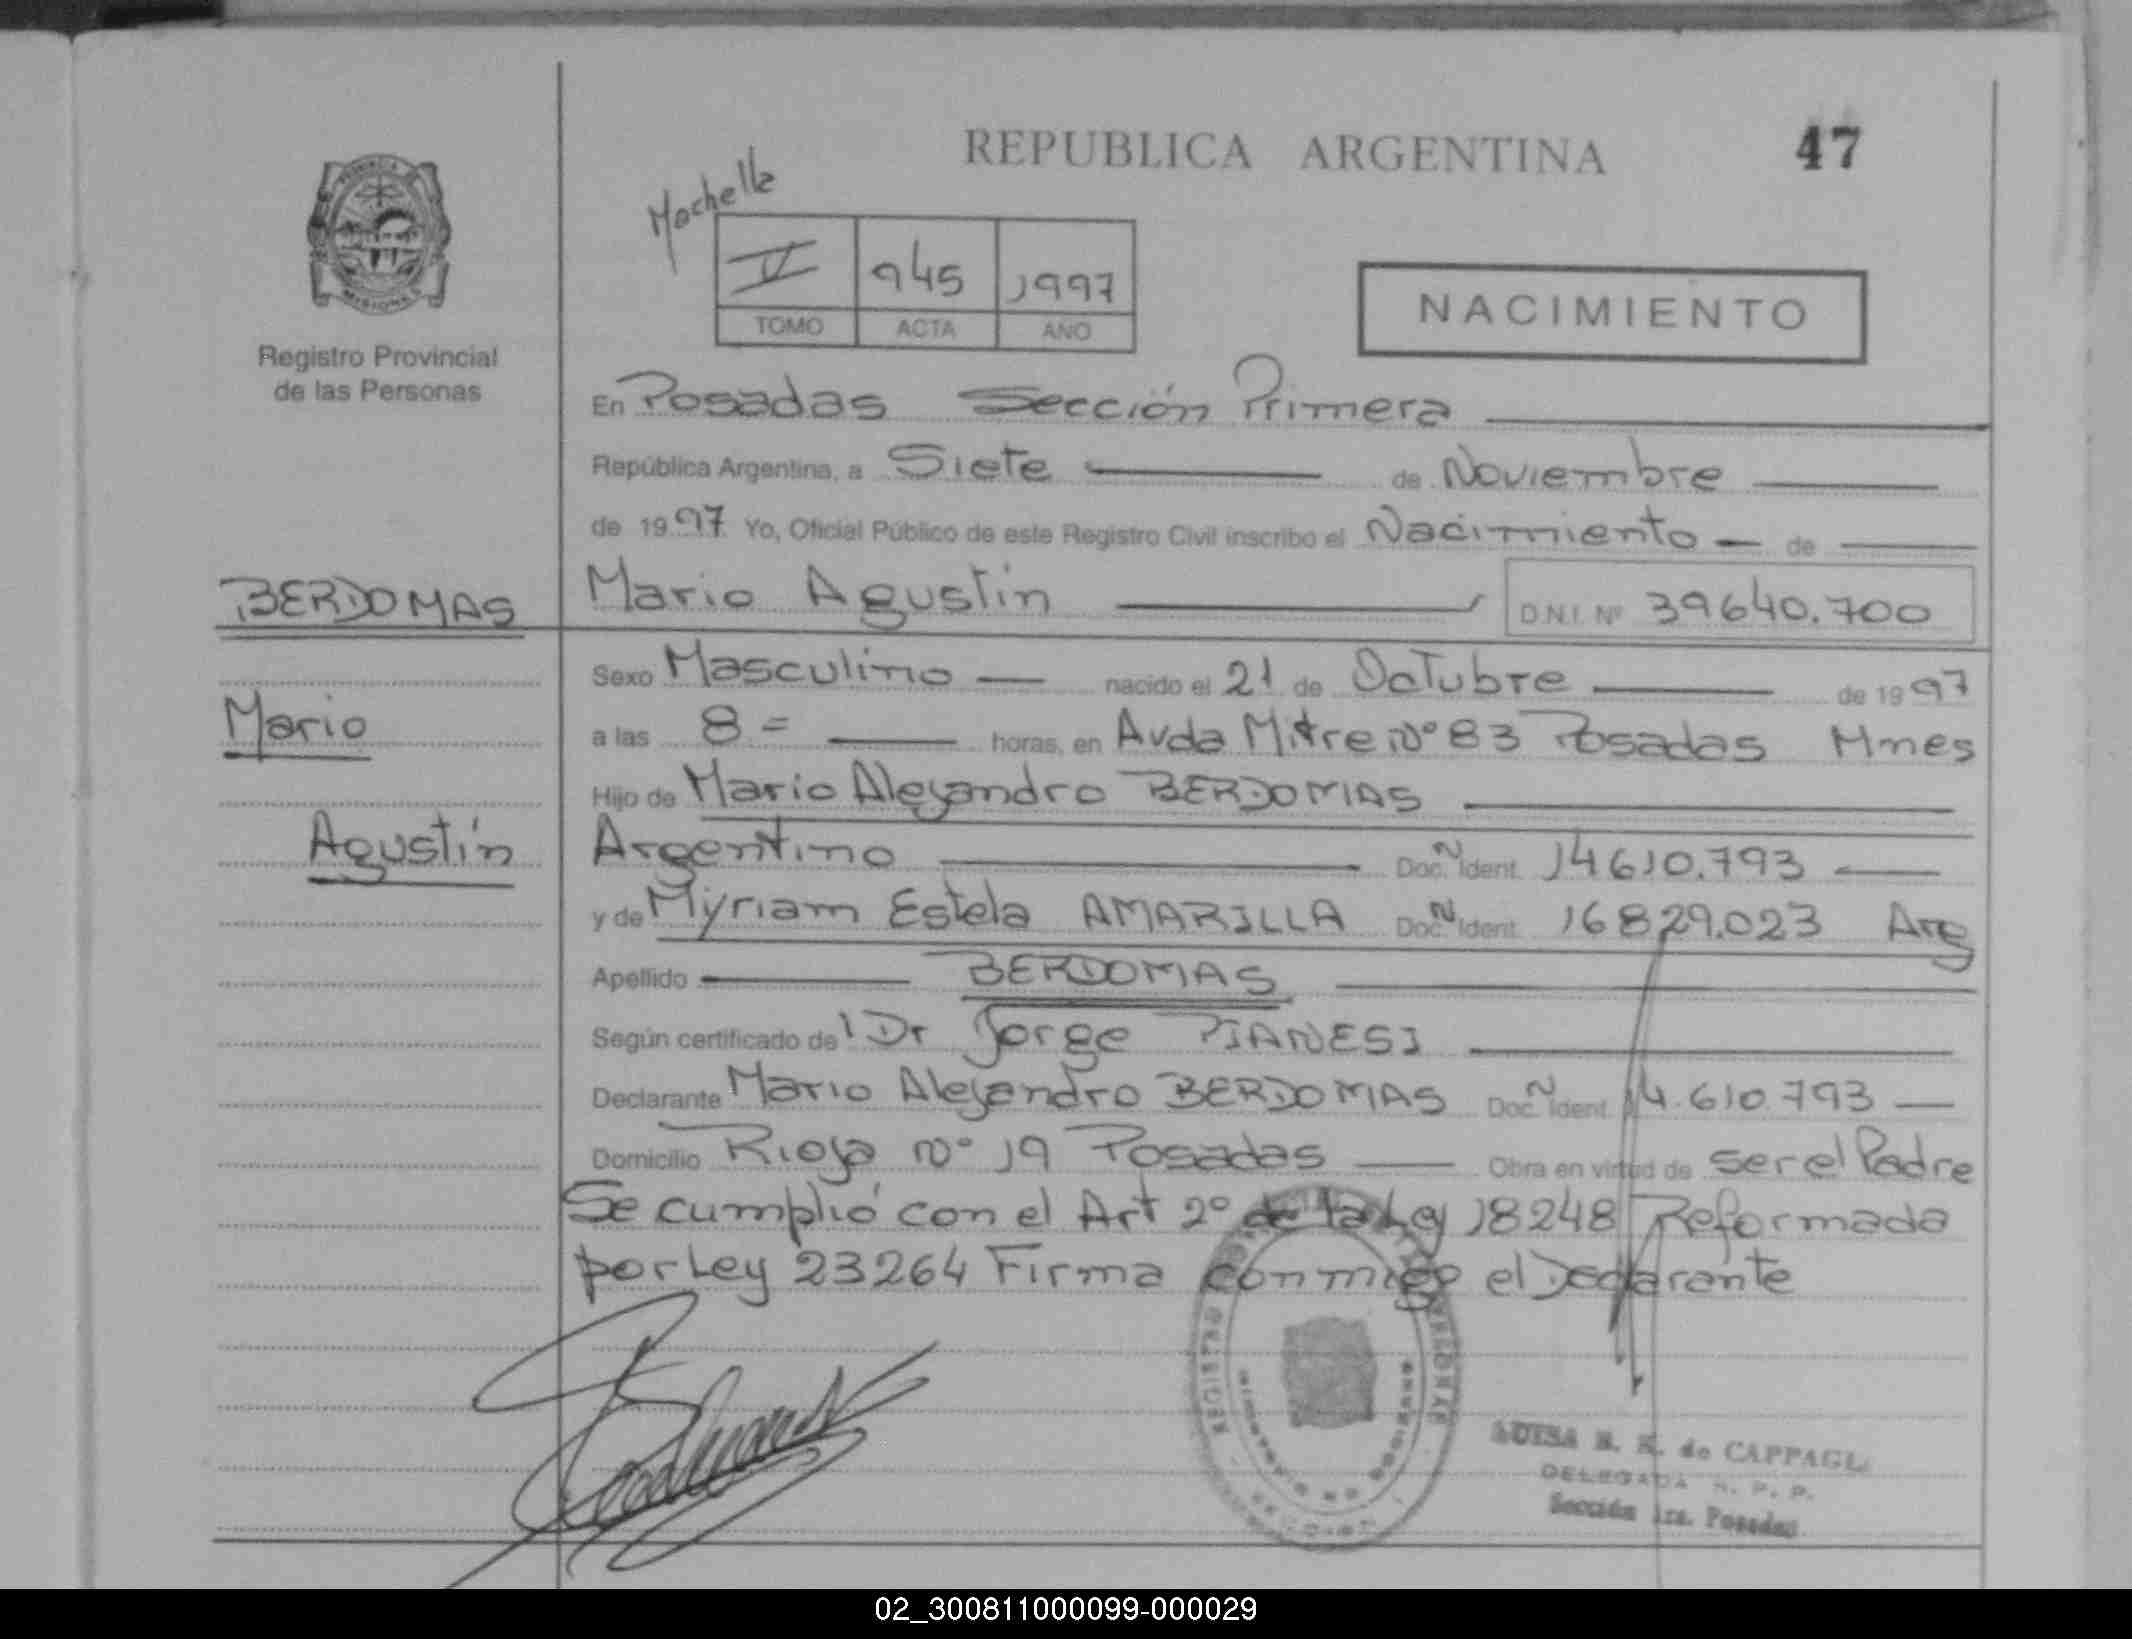 REPUBLICA ARGENTINA
47
PROVINCIA
MISIONES
Registro Provincial
de las Personas
IV 945 1997
TOMO ACTA AÑO
NACIMIENTO
En Posadas Sección Primera
República Argentina, a Siete de Noviembre
de 1997 Yo, Oficial Público de este Registro Civil inscribo el Nacimiento de
BERDOMAS
Mario Agustín D.N.I. Nº 39640.700
Sexo Masculino nacido el 21 de Octubre de 1997
Mario
a las 8= horas, en Avda Mitre Nº 83 Posadas Mnes
Hijo de Mario Alejandro BERDOMAS
Agustín
Argentino Doc. N Ident. 14610.793
y de Myriam Estela AMARILLA Doc. N Ident. 16829.023 Arg
Apellido BERDOMAS
Según certificado de Dr Jorge PIANESI
Declarante Mario Alejandro BERDOMAS Doc. N Ident. 14.610.793
Domicilio Rioja Nº 19 Posadas Obra en virtud de ser el Padre
Se cumplió con el Art 2º de la Ley 18248 Reformada
por Ley 23264 Firma conmigo el Declarante
LUISA de CAPPAGL
DELEGADA R. P. P.
Sección 1ra. Posadas
02_300811000099-000029